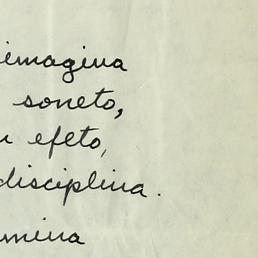 imagina
soneto,
efeto,
disciplina.
mina